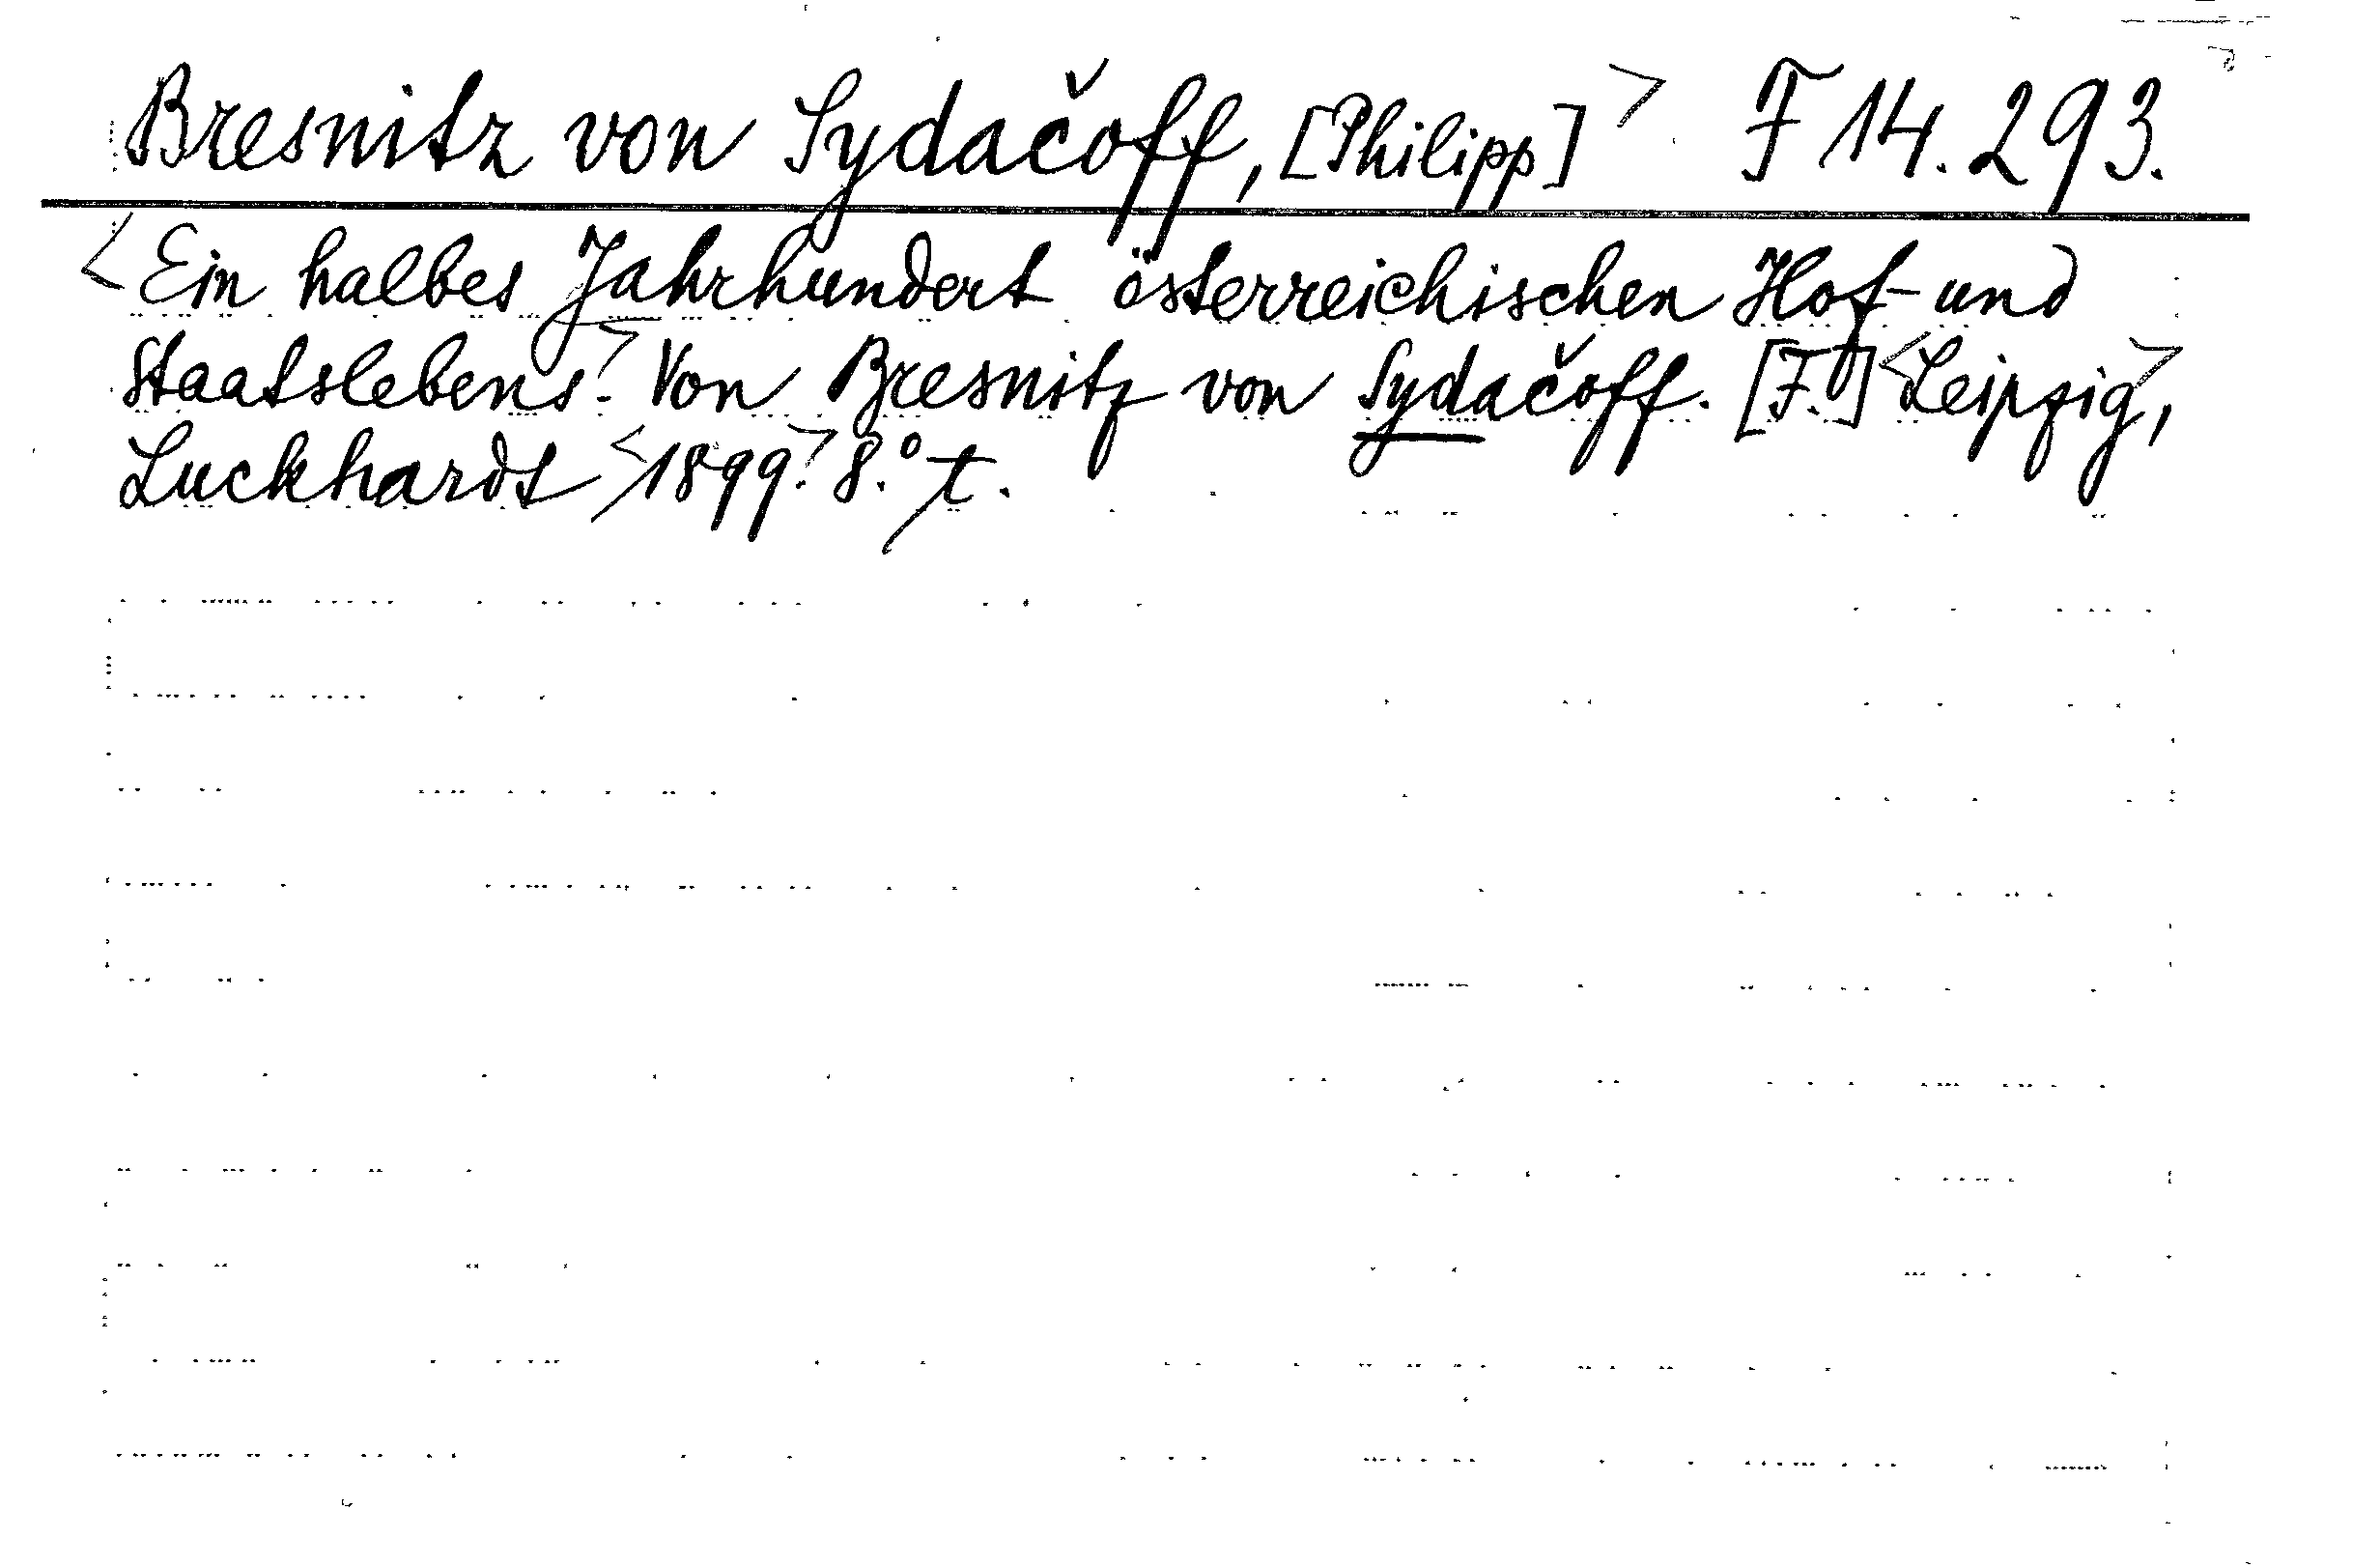 Bresnitz von Sydačoff, [Philipp]> F 14.293.
<Ein halbes Jahrhundert österreichischen Hof- und
Staatslebens.> Von Bresnitz von Sydačoff. [F.] <Leipzig>,
Luckhardt <1899.> 8.° t.